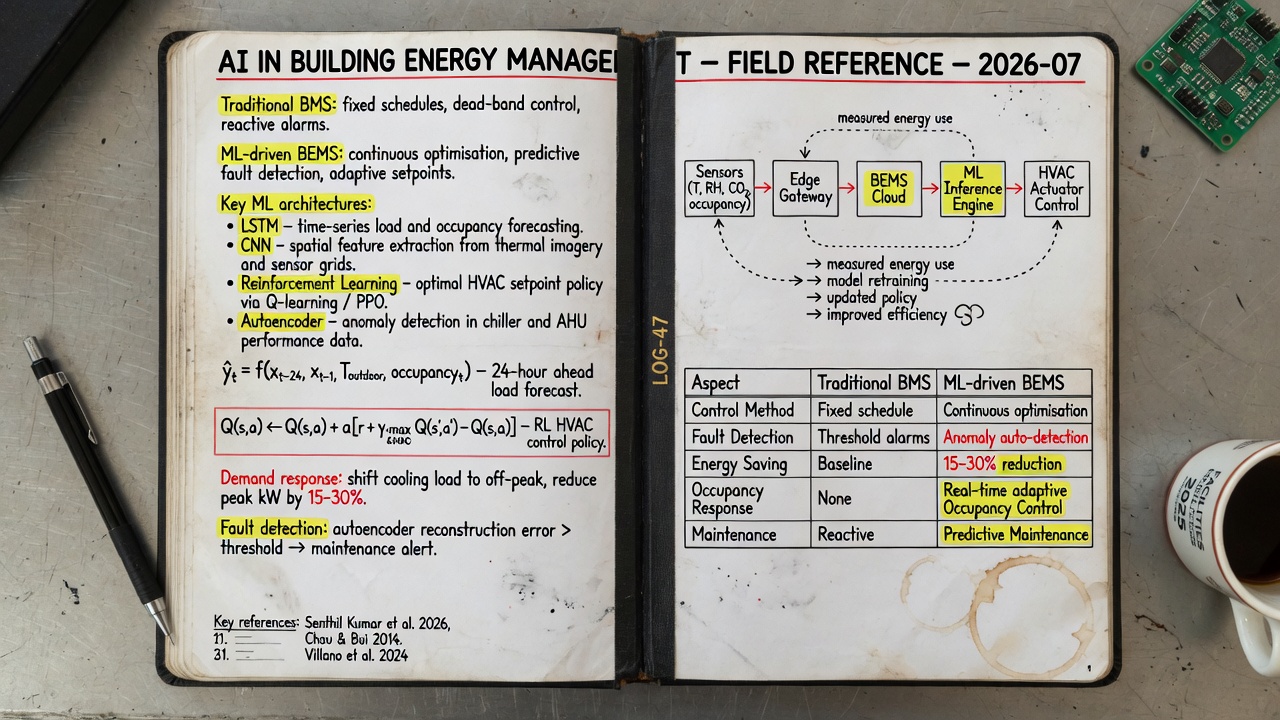 AI IN BUILDING ENERGY MANAGE T – FIELD REFERENCE – 2026-07
Traditional BMS: fixed schedules, dead-band control,
reactive alarms.
ML-driven BEMS: continuous optimisation, predictive
fault detection, adaptive setpoints.
Key ML architectures:
• LSTM – time-series load and occupancy forecasting.
• CNN – spatial feature extraction from thermal imagery
and sensor grids.
• Reinforcement Learning – optimal HVAC setpoint policy
via Q-learning / PPO.
• Autoencoder – anomaly detection in chiller and AHU
performance data.
ŷt = f(xt-24, xt-1, Toutdoor, occupancyt) – 24-hour ahead
load forecast.
Q(s,a) ← Q(s,a) + a[r + γ max Q(s',a') – Q(s,a)] – RL HVAC
control policy.
Demand response: shift cooling load to off-peak, reduce
peak kW by 15–30%.
Fault detection: autoencoder reconstruction error >
threshold → maintenance alert.
Key references: Senthil Kumar et al. 2026,
11. Chau & Bui 2014.
31. Villano et al. 2024
LOG-47
measured energy use
Sensors
(T, RH, CO2,
occupancy)
Edge
Gateway
BEMS
Cloud
ML
Inference
Engine
HVAC
Actuator
Control
→ measured energy use
→ model retraining
→ updated policy
→ improved efficiency
Aspect Traditional BMS ML-driven BEMS
Control Method Fixed schedule Continuous optimisation
Fault Detection Threshold alarms Anomaly auto-detection
Energy Saving Baseline 15–30% reduction
Occupancy Response None Real-time adaptive Occupancy Control
Maintenance Reactive Predictive Maintenance
1
FACILITIES
2025